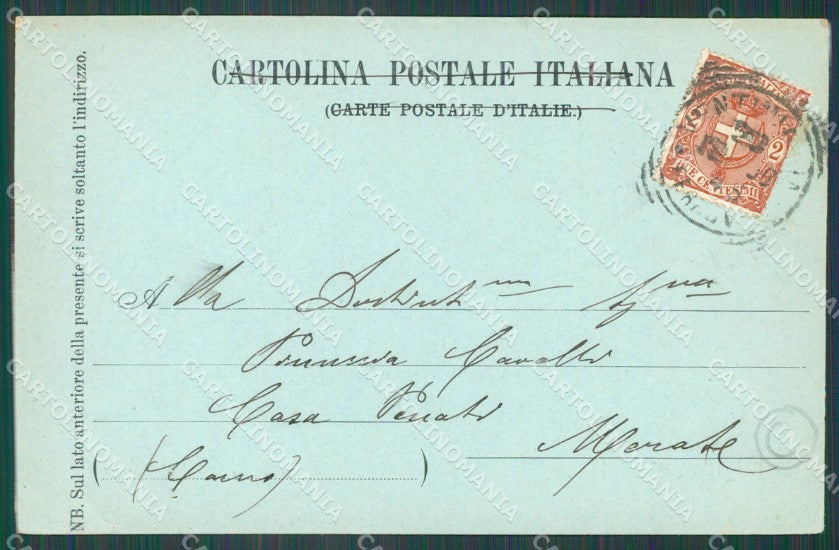 CARTOLINA POSTALE ITALIANA
(CARTE POSTALE D'ITALIE.)
2
DUE CENTESIMI
NB. Sul lato anteriore della presente si scrive soltanto l'indirizzo.
Alla Distint.ma Sig.na
Cavalli
Casa Penati
Merate
(Como)
CARTOLINOMANIA